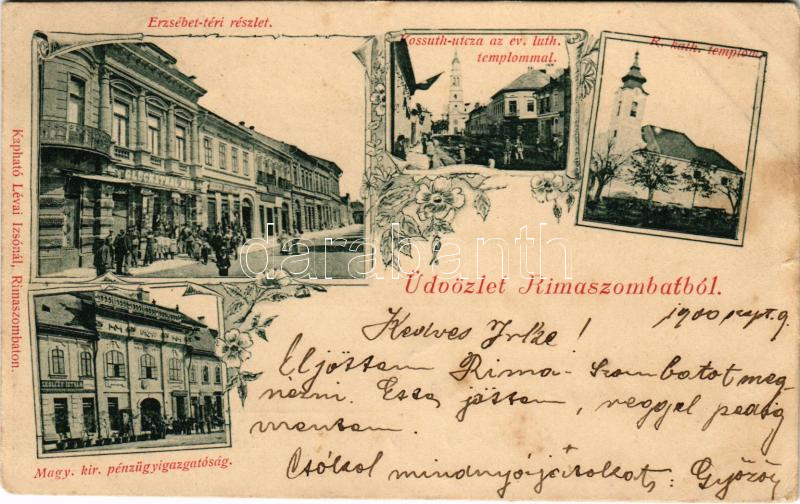 Erzsébet-téri részlet.
Kossuth-utcza az ev. luth.
templommal.
R. kath. templom.
Kapható Lévai Izsónál, Rimaszombaton.
Üdvözlet Rimaszombatból.
darabanth
Magy. kir. pénzügyigazgatóság.
1900 szept. 9.
Kedves Irke!
Eljöttem Rima-Szombatot meg-
nézni. Este jöttem, reggel pedig
mentem.
Csókol mindnyájatokat: Győző